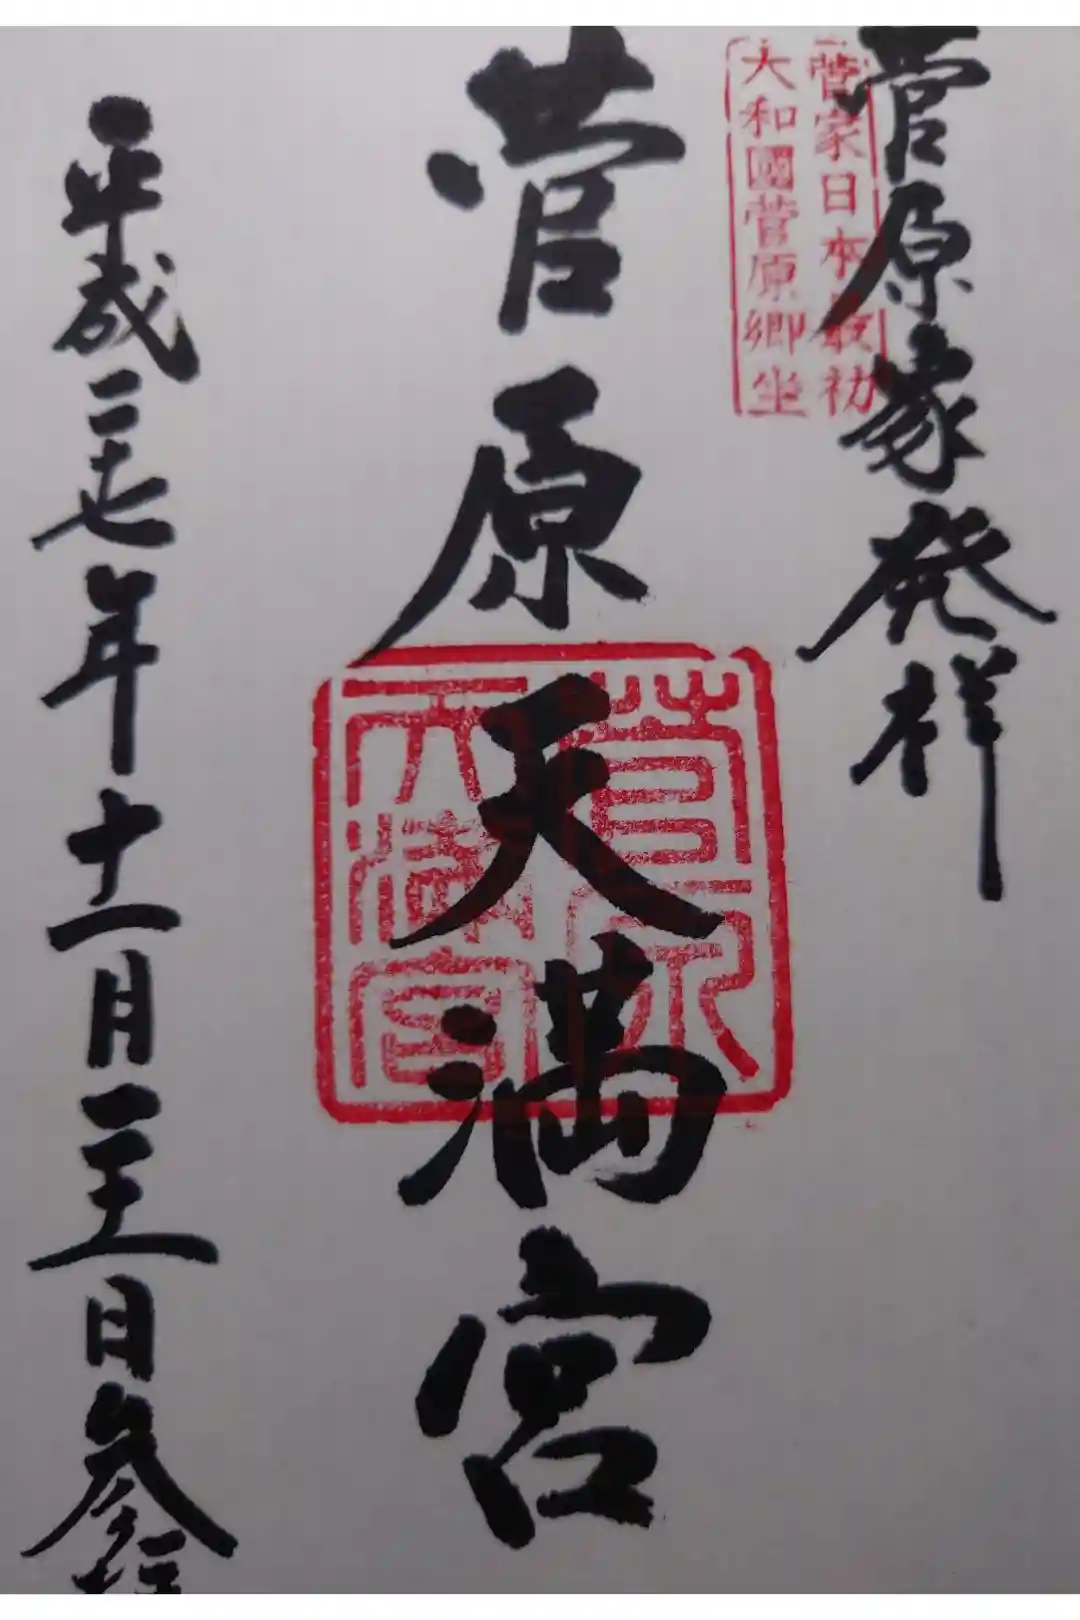 菅原家発祥
菅家日本最初
大和國菅原郷坐
菅原天満宮
菅原
天満宮
平成二十七年十一月二十一日参拝